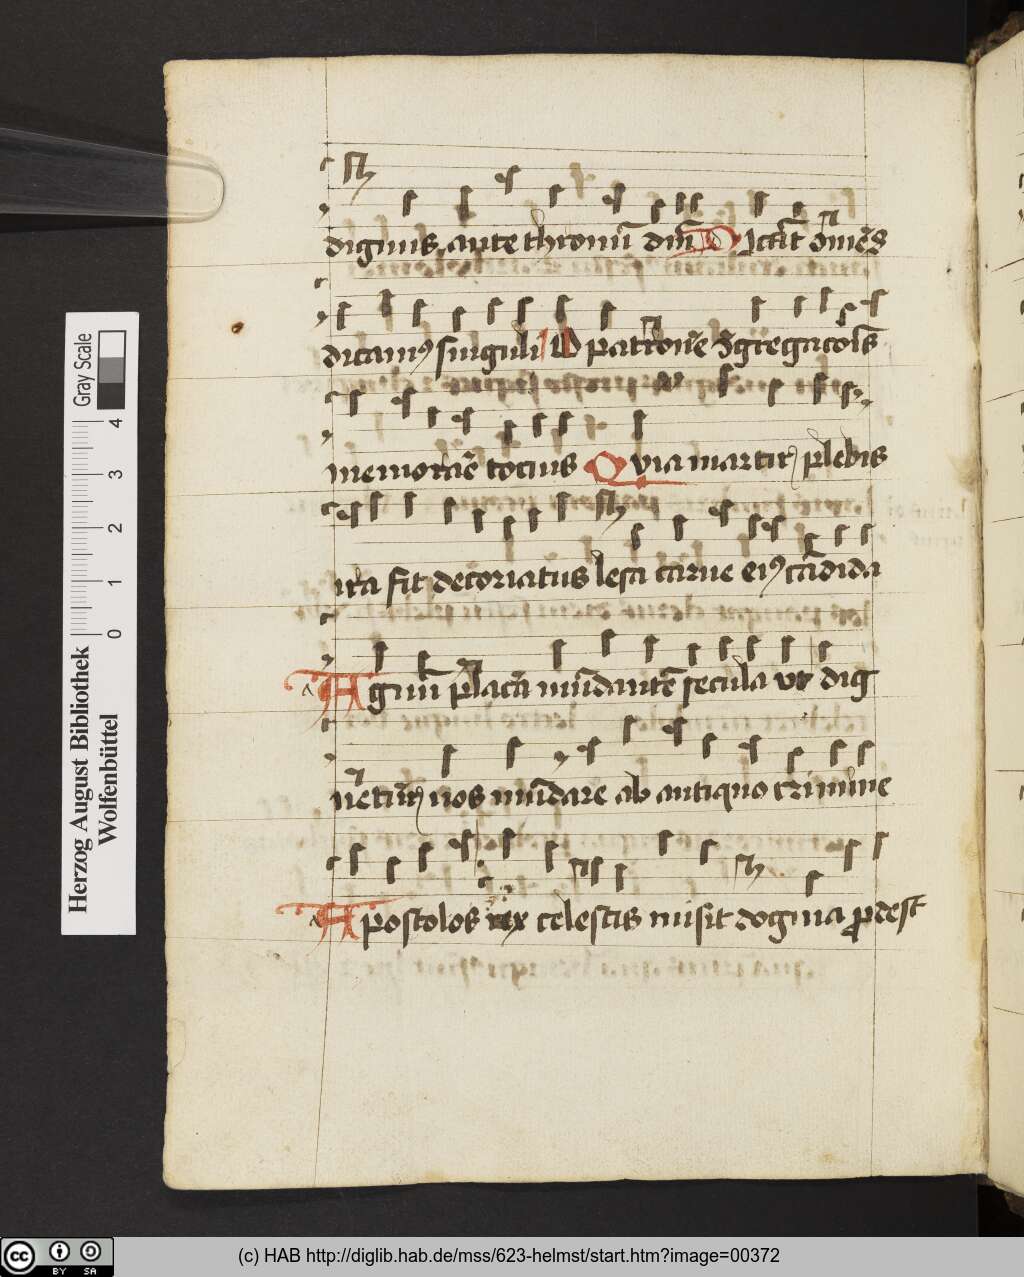 dignus ante thronū dn̄i Dicāt om̄es
dicamꝰ singuli O patrone ꝯgregacōis
memorāe tocius Quia martirꝭ plebis
ira fit decoriatus lesa carne eiꝰ cādida
a Agnū placā mūdantē secula vt dig
netur nos mūdare ab antiquo crimine
a Apostolos rex celestis misit dogma prodest
Gray Scale
4
3
2
1
0
Herzog August Bibliothek
Wolfenbüttel
cc BY SA
(c) HAB http://diglib.hab.de/mss/623-helmst/start.htm?image=00372